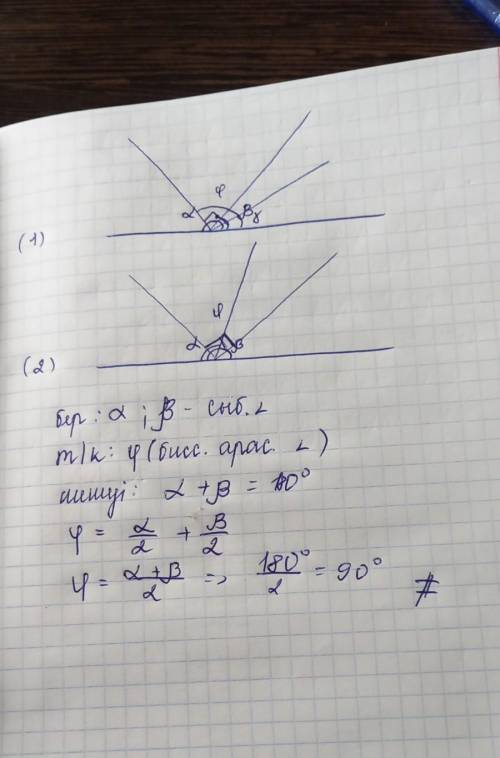 φ
α β γ
(1)
φ
α β
(2)
бер: α ; β - сыб. ∠
т/к: φ (бисс. арас. ∠)
шешуі: α + β = 180°
φ = α/2 + β/2
φ = α + β/2 => 180°/2 = 90° #